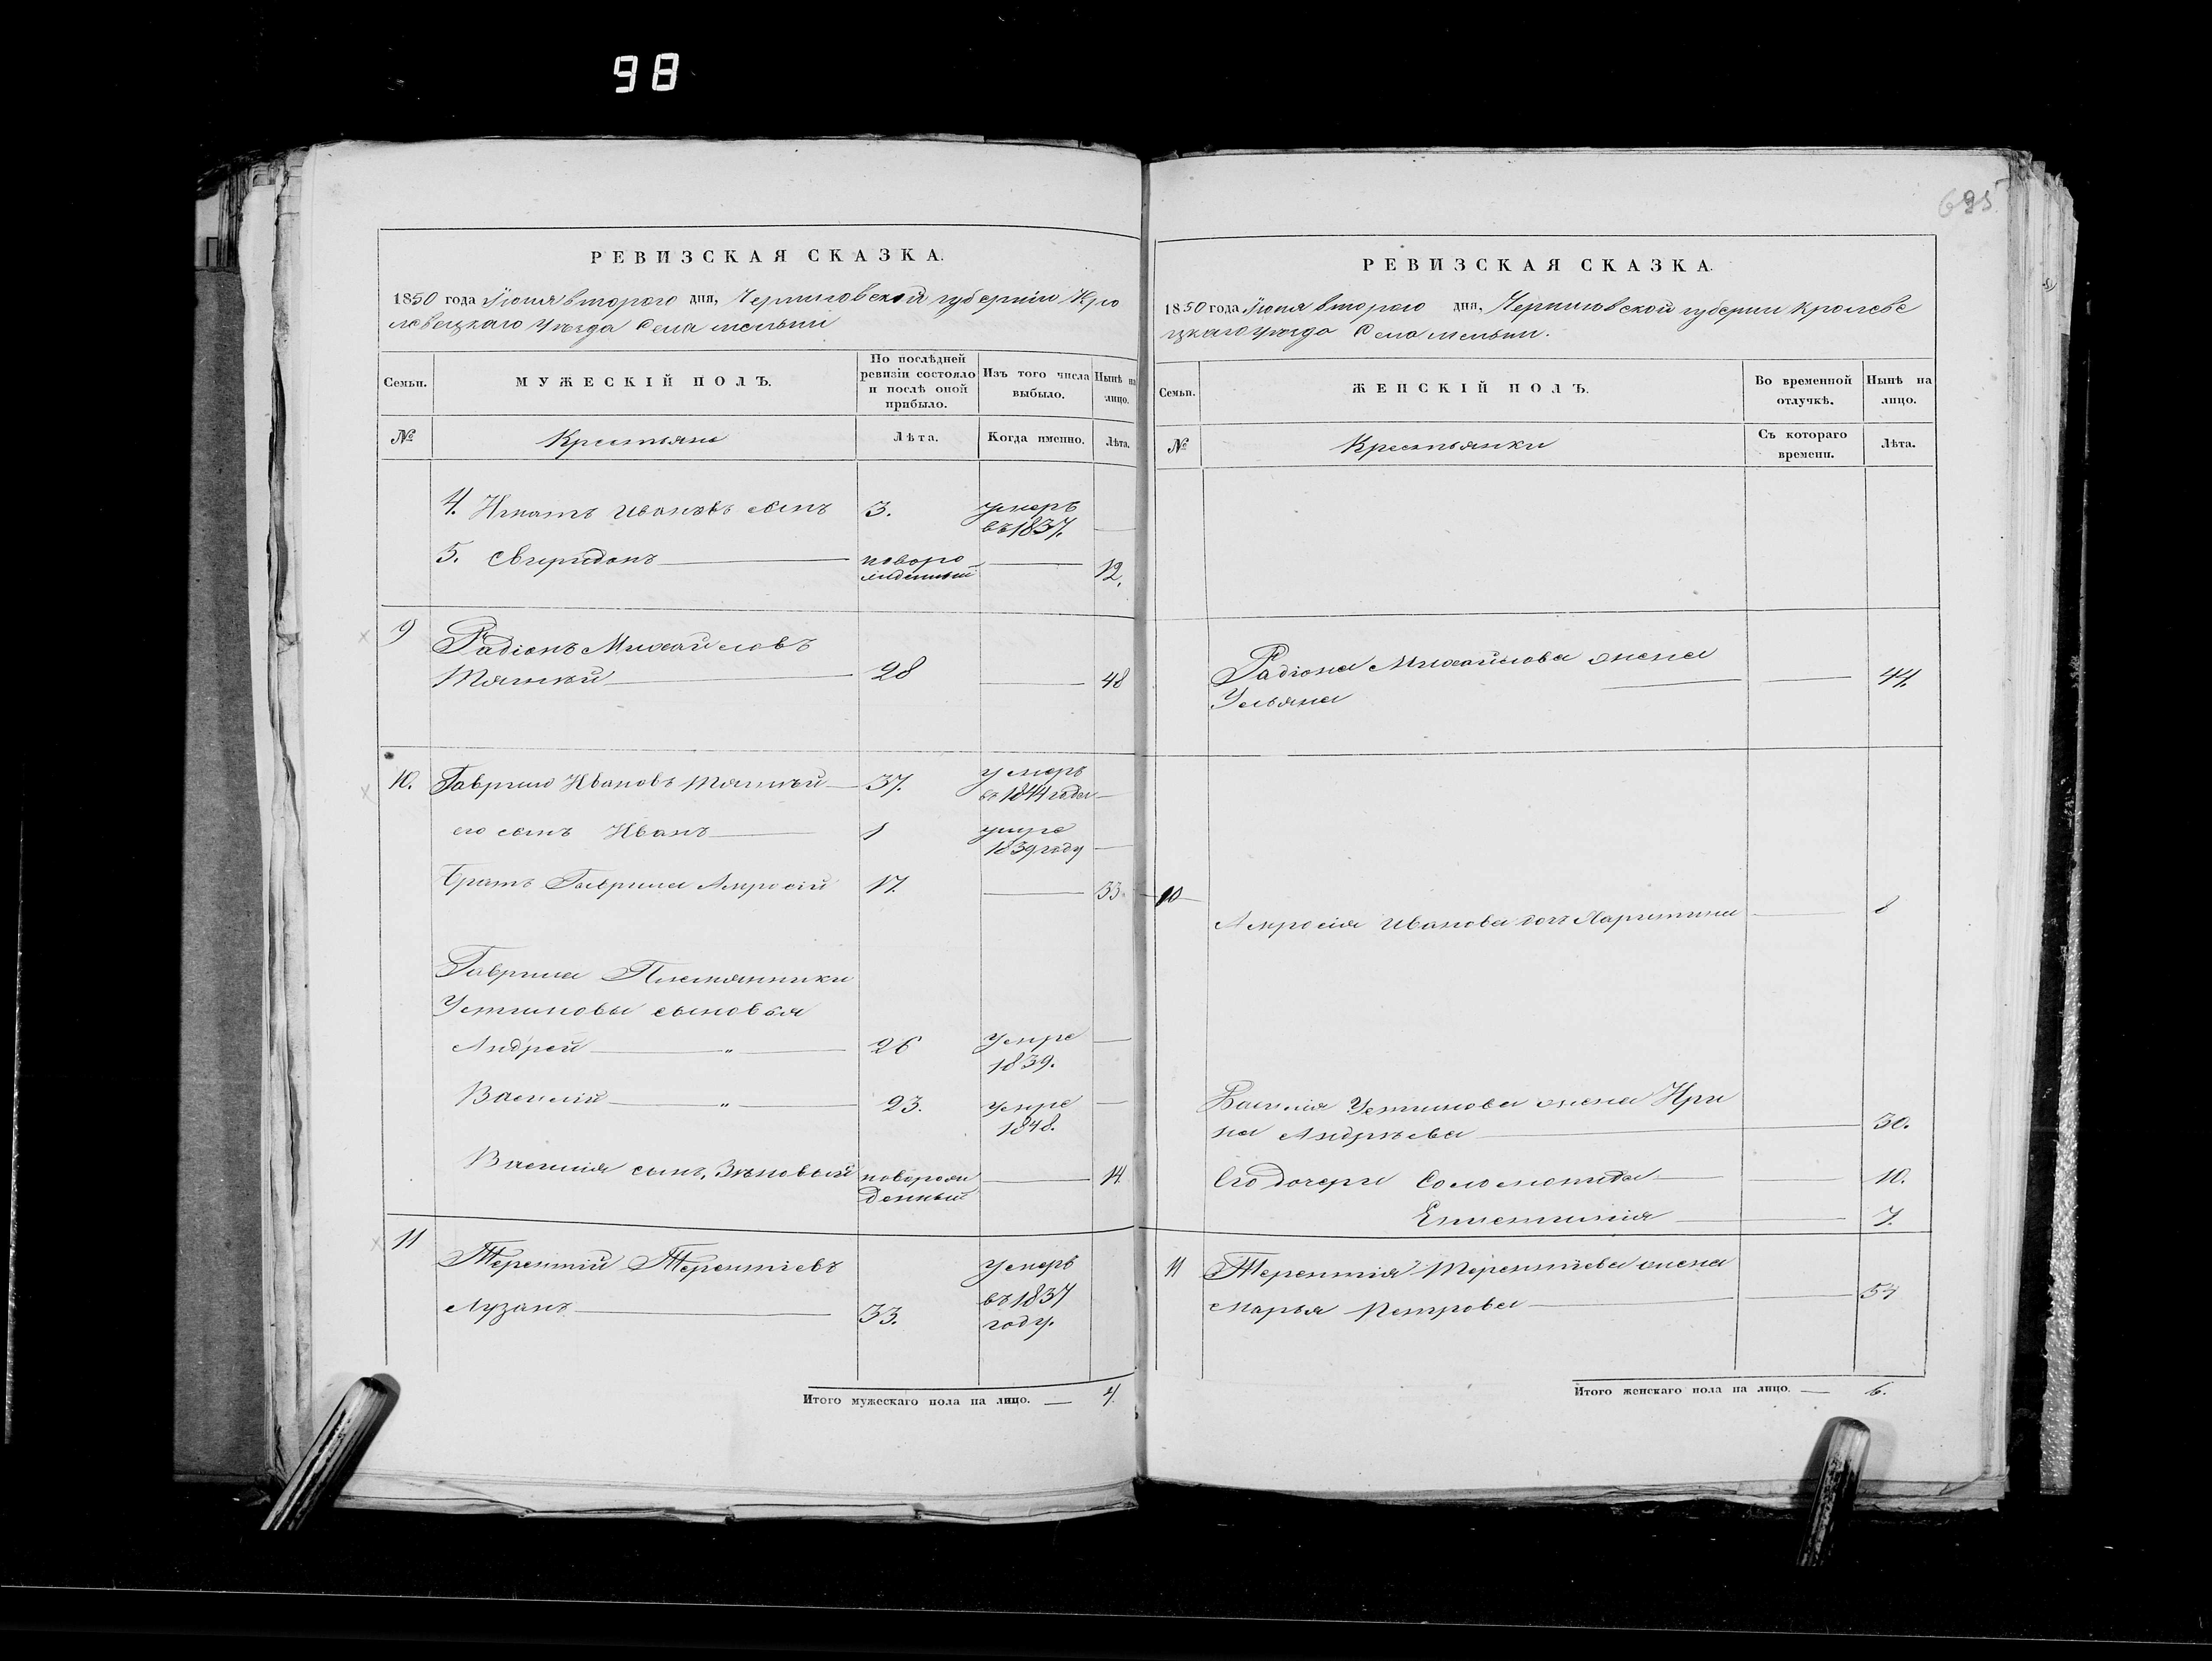 98
695
РЕВИЗСКАЯ СКАЗКА.
1850 года Іюня второго дня, Черниговской губерніи Кро
левецкаго уѣзда Села
Семьи.
МУЖЕСКІЙ ПОЛЪ.
По послѣдней ревизіи состояло и послѣ оной прибыло.
Изъ того числа выбыло.
Нынѣ на лицо.
№
Крестьяне
Лѣта.
Когда именно.
Лѣта.
4. Игнатъ Ивановъ сынъ 3. умеръ
въ 1837. —
5. Свиридонъ — новоро
жденный — 12.
9 Радіонъ Михайловъ
28 — 48
10. Гаврило Ивановъ — 37. умеръ
въ 1844 года —
его сынъ Иванъ — 1 умре
1839 году —
братъ Гаврила Амросій 17. — 33.
Гаврила Племянники
Устиновы сыновья
Андрей — „ — 26 умре
1839. —
Василій — „ — 23. умре
1848. —
Василія сынъ, Зѣновый новорож
денный — 14
11 Терентій Терентіевъ умеръ
Лузанъ — 33. въ 1837
году.
Итого мужескаго пола на лицо. — 4.
РЕВИЗСКАЯ СКАЗКА.
1850 года Іюня второго дня, Черниговской губерніи Кролеве
цкаго уѣзда Села
Семьи.
ЖЕНСКІЙ ПОЛЪ.
Во временной отлучкѣ.
Нынѣ на лицо.
№
Крестьянки
Съ котораго времени.
Лѣта.
Радіона Михайлова жена
Ульяна — — 44.
10
Амросія Иванова дочь Харитина — 8
Василія Устинова жена Ири
на Андрѣева — 30.
Его дочери Соломонида — — 10.
Епистинія — 7.
11 Терентія Терентіева жена
Марья Петрова — — 54
Итого женскаго пола на лицо. — 6.